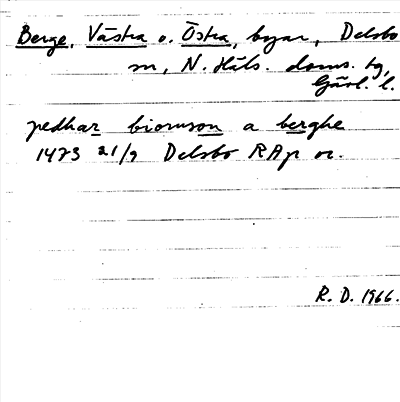 Berge, Västra o. Östra, byar, Delsbo
sn, N. Häls. doms. tg,
Gävl. l.
pedhar biornson a berghe
1473 21/9 Delsbo RAp or.
R. D. 1966.